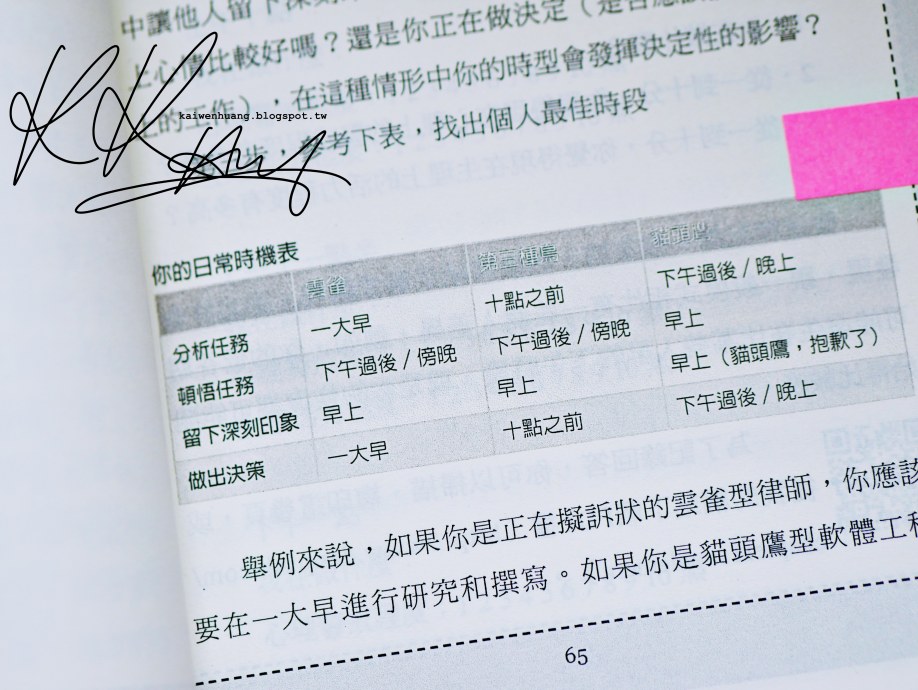 中讓他人留下深刻
上心情比較好嗎？還是你正在做決定（是否應該
上的工作），在這種情形中你的時型會發揮決定性的影響？
步，參考下表，找出個人最佳時段
kaiwenhuang.blogspot.tw
你的日常時機表
雲雀 第三種鳥 貓頭鷹
分析任務 一大早 十點之前 下午過後 / 晚上
頓悟任務 下午過後 / 傍晚 下午過後 / 傍晚 早上
留下深刻印象 早上 早上 早上（貓頭鷹，抱歉了）
做出決策 一大早 十點之前 下午過後 / 晚上
舉例來說，如果你是正在擬訴狀的雲雀型律師，你應該
要在一大早進行研究和撰寫。如果你是貓頭鷹型軟體工程
65